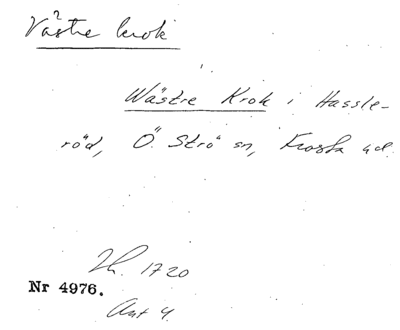 Västre krok
Wästre Krok i Hassle-
röd, Ö. Strö sn, Frosta hd.
Lh. 1720
Nr 4976.
Ant 4.